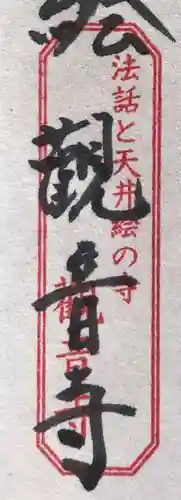 絵
觀音寺
法話と天井絵の寺
觀音寺